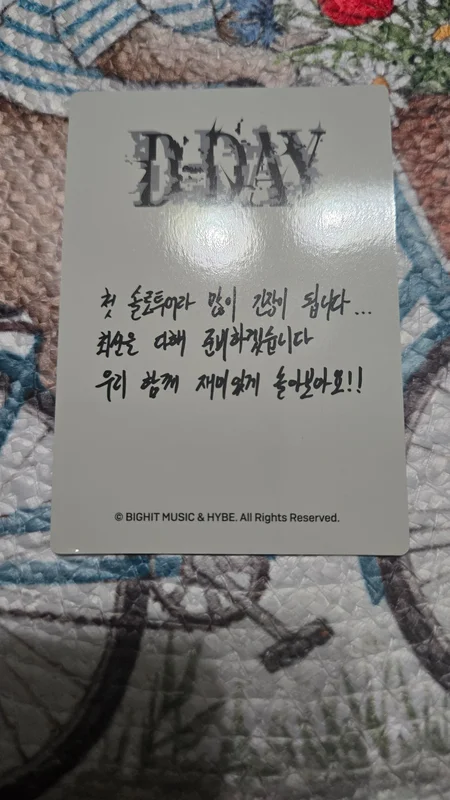 D-DAY
첫 솔로투어라 많이 긴장이 됩니다...
최선을 다해 준비하겠습니다
우리 함께 재미있게 놀아보아요!!
© BIGHIT MUSIC & HYBE. All Rights Reserved.